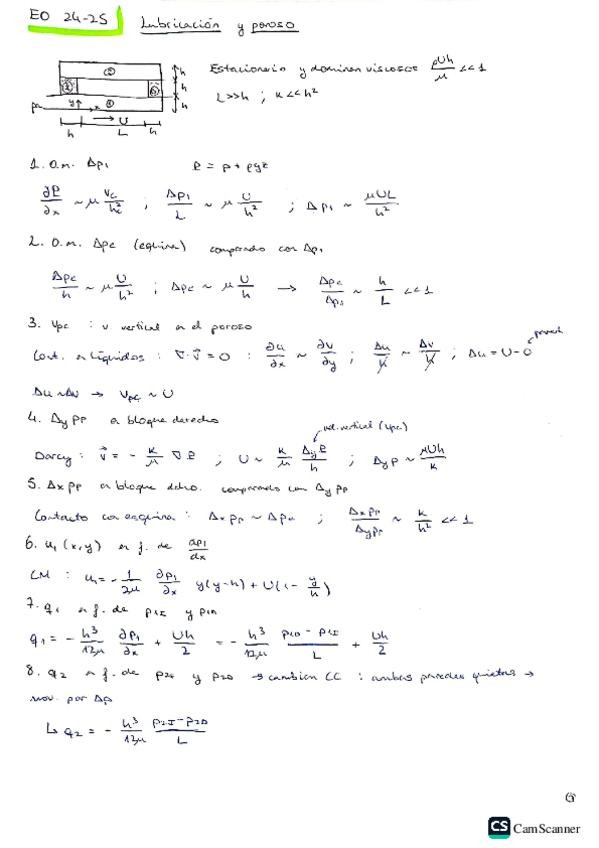 EO 24-25 Lubricación y poroso
Estacionario y dominan viscosos ρUh/μ <<1
L>>h ; K<<h²
② h
③ ④ h
y x ① h
h U L h
1. O.m. Δp₁ P = p + ρgz
∂P/∂x ~ μ Vc/hc² ; Δp₁/L ~ μ U/h² ; Δp₁ ~ μUL/h²
2. O.m. Δpc (esquina) comparado con Δp₁
Δpc/h ~ μ U/h² ; Δpc ~ μ U/h → Δpc/Δp₁ ~ h/L <<1
3. Vpc : v vertical en el poroso
Cont. en líquidos : ∇·v⃗ = 0 : ∂u/∂x ~ ∂v/∂y ; Δu/h ~ Δv/h ; Δu = U-0 pared
Δu~Δv → Vpc ~ U
4. Δy pp en bloque derecho
vel. vertical (Vpc)
Darcy : v⃗ = - K/μ ∇P ; U ~ K/μ ΔyP/h ; Δyp ~ μUh/K
5. Δx pp en bloque dcho. comparado con Δy pp
Contacto con esquina : Δx pp ~ Δpc ; Δx pp/Δy pp ~ K/h² <<1
6. u₁ (x,y) en f. de dp₁/dx
CM : u₁ = - 1/2μ ∂p₁/∂x y(y-h) + U(1 - y/h)
7. q₁ en f. de p1I y p1D
q₁ = - h³/12μ ∂p₁/∂x + Uh/2 = - h³/12μ p1D - p1I/L + Uh/2
8. q₂ en f. de p2I y p2D → cambian CC : ambas paredes quietas →
mov. por Δp
↳ q₂ = - h³/12μ p2I - p2D/L
CS CamScanner